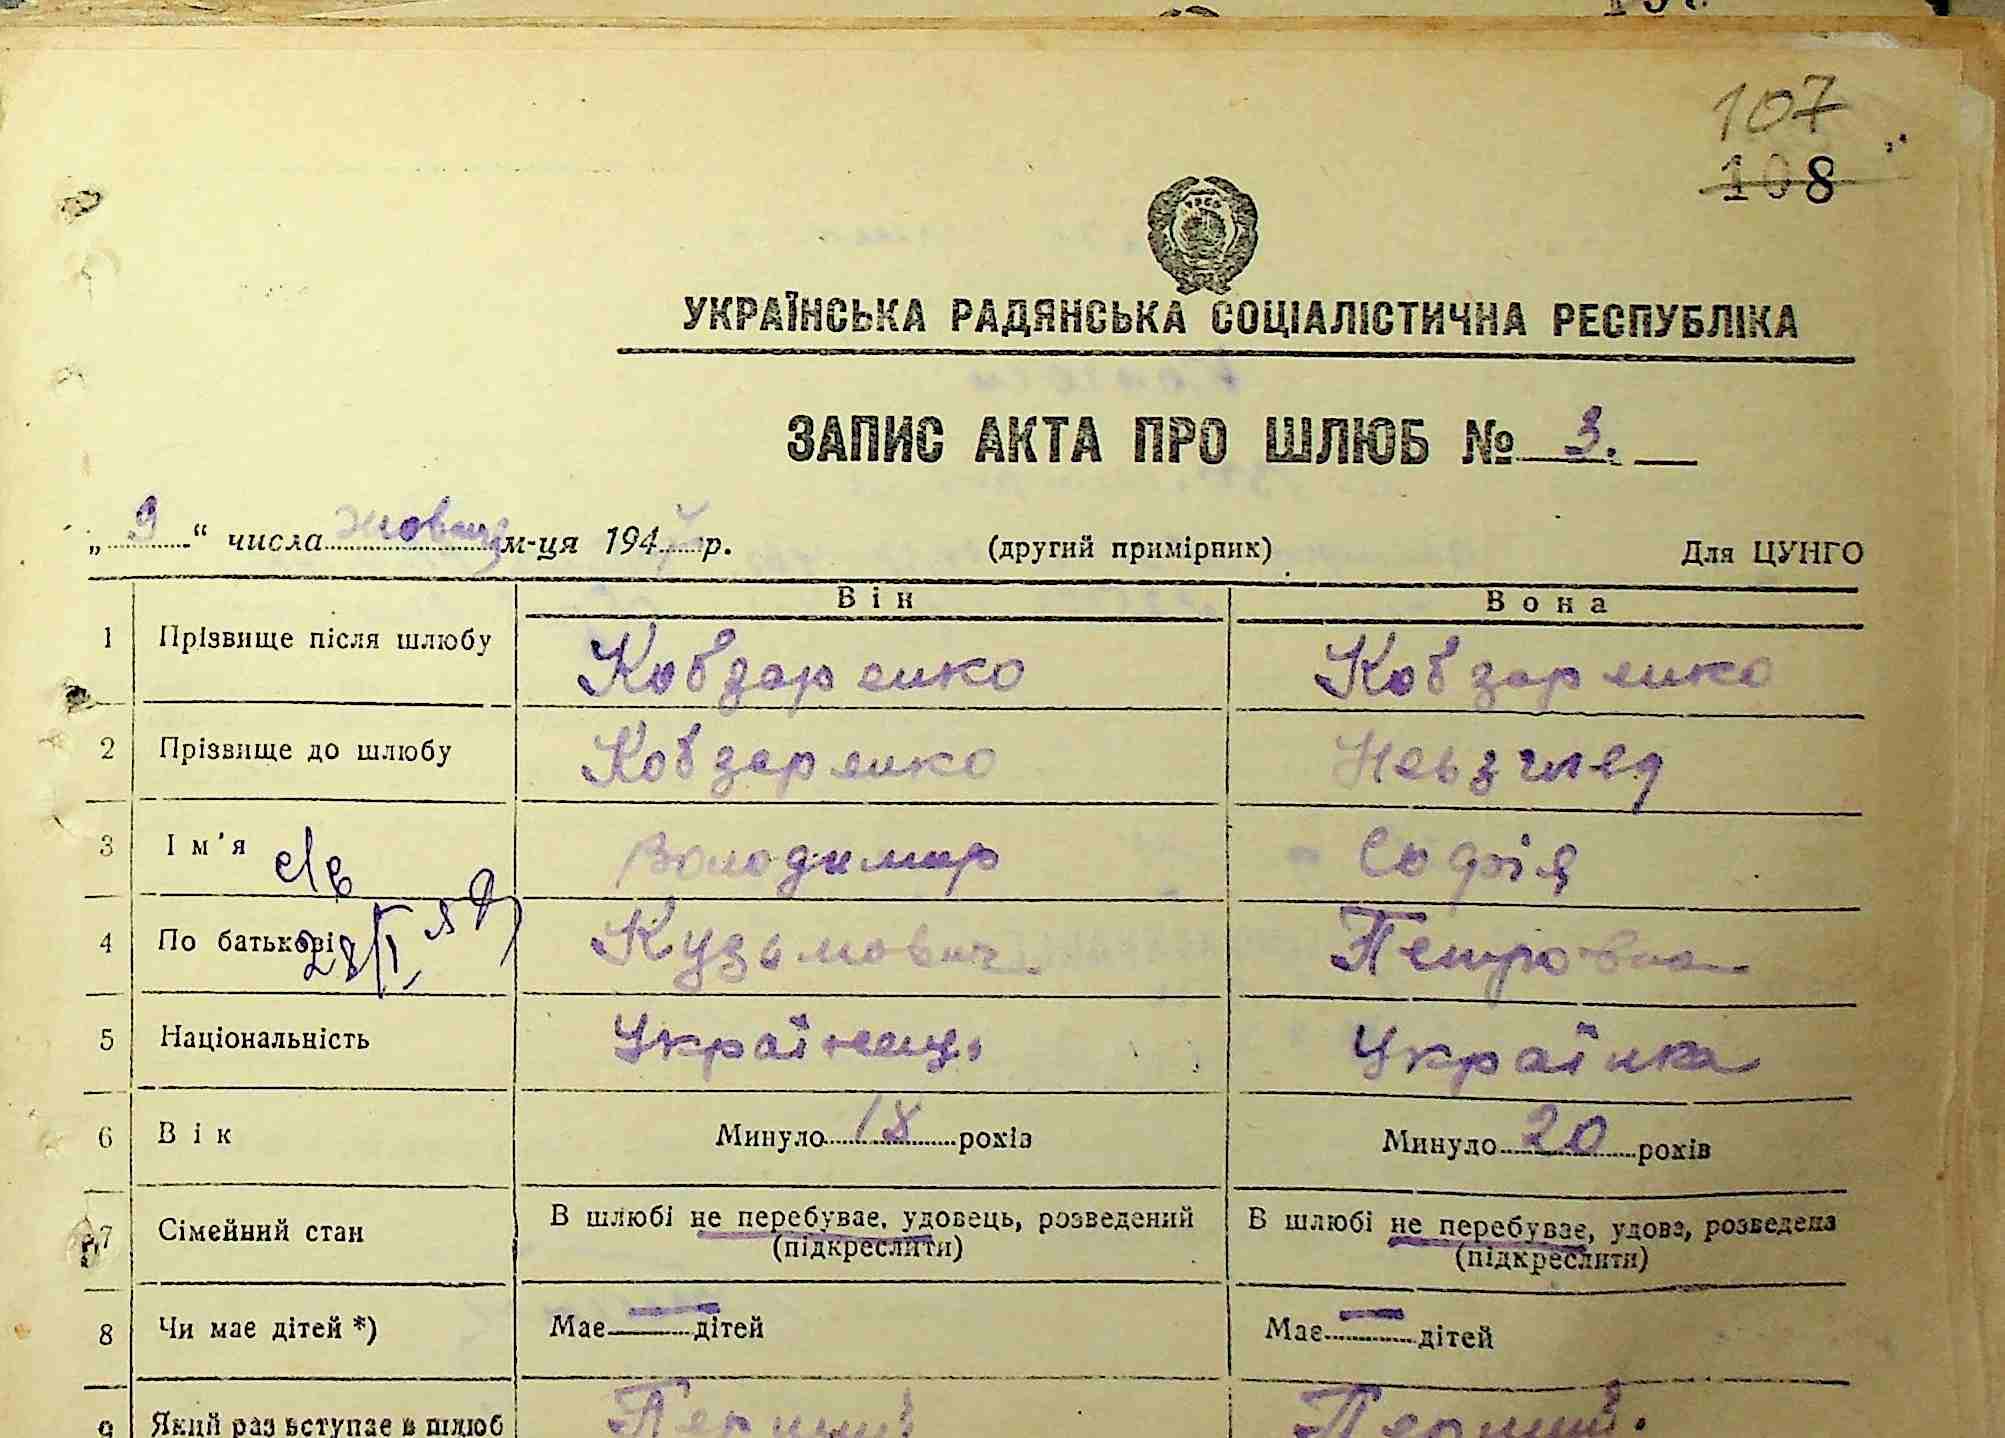 107
108
УКРАЇНСЬКА РАДЯНСЬКА СОЦІАЛІСТИЧНА РЕСПУБЛІКА
ЗАПИС АКТА ПРО ШЛЮБ № 3.
„ 9 “ числа жовтня м-ця 194 р. (другий примірник) Для ЦУНГО
Він Вона
1 Прізвище після шлюбу Кобзаренко Кобзаренко
2 Прізвище до шлюбу Кобзаренко Невзгляд
3 Ім'я Володимир Софія
4 По батькові Кузьмович Петровна
5 Національність Українець Українка
6 Вік Минуло 18 років Минуло 20 років
7 Сімейний стан В шлюбі не перебуває, удовець, розведений В шлюбі не перебуває, удова, розведена
(підкреслити) (підкреслити)
8 Чи має дітей *) Має — дітей Має — дітей
9 Який раз вступає в шлюб Перший Перший.